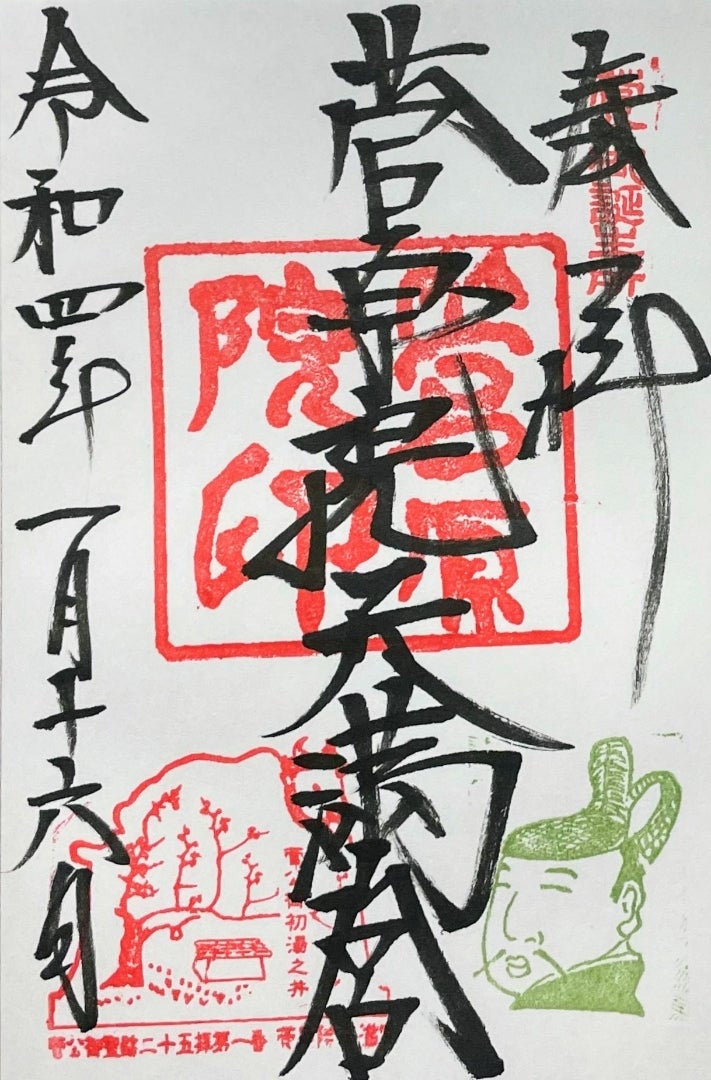 誕生所
奉拝
菅原院天満宮
菅原院印
令和四年一月十六日
菅公御初湯之井
菅公御聖蹟二十五拝第一番